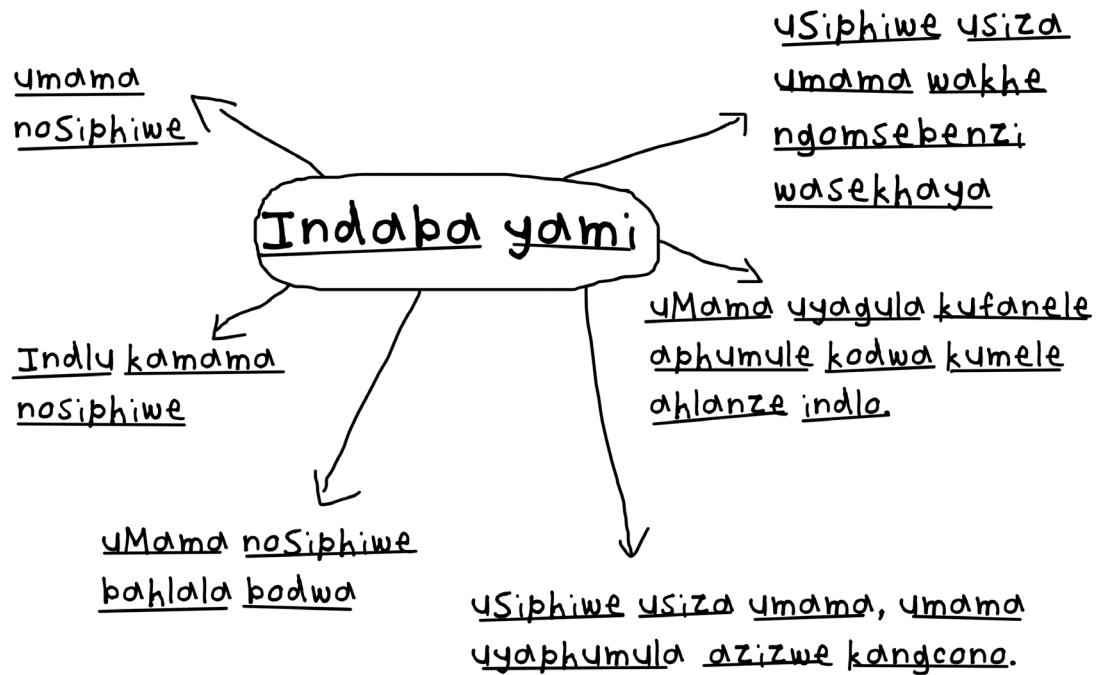 umama
noSiphiwe
uSiphiwe usiza
umama wakhe
ngomsebenzi
wasekhaya
Indaba yami
uMama uyagula kufanele
aphumule kodwa kumele
ahlanze indlo.
Indlu kamama
nosiphiwe
uMama noSiphiwe
bahlala bodwa
uSiphiwe usiza umama, umama
uyaphumula azizwe kangcono.